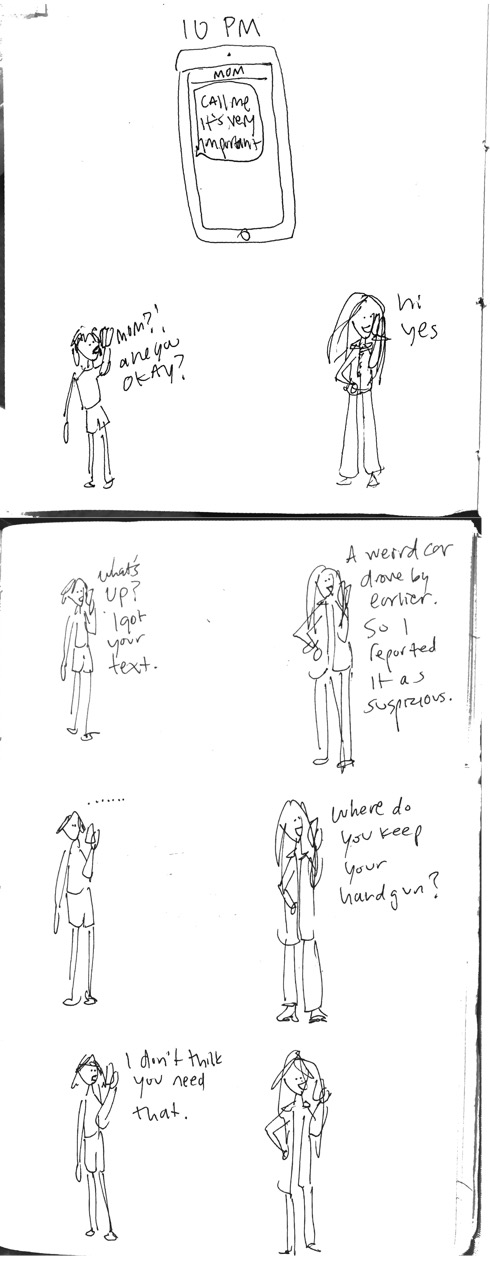 10 PM
MOM
CALL me
It's very
important
mom?!
are you
OKAY?
hi
yes
what's
up?
I got
your
text.
A weird car
drove by
earlier.
So I
reported
it as
suspicious.
......
where do
you keep
your
handgun?
I don't think
you need
that.